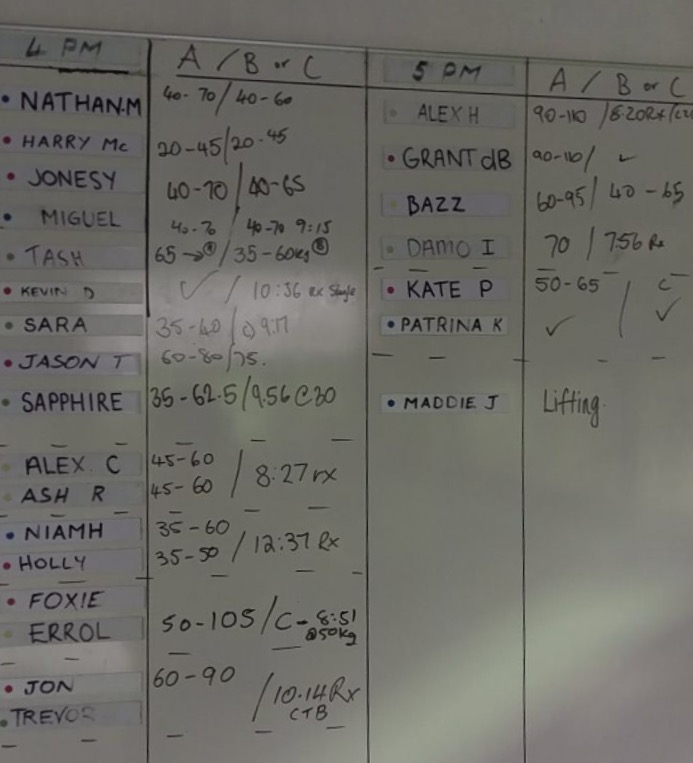 4 PM A / B or C
NATHAN.M 40-70 / 40-60
HARRY Mc 20-45/20-45
JONESY 40-70 / 40-65
MIGUEL 40-70 / 40-70 9:15
TASH 65→ / 35-60kg
KEVIN D ✓ / 10:36 Rx Single
SARA 35-40 / 9:17
JASON T 60-80/75.
SAPPHIRE 35-62.5/9.56 C30
ALEX C 45-60
ASH R 45-60 / 8:27 rx
NIAMH 35-60
HOLLY 35-50 / 12:37 Rx
FOXIE
ERROL 50-105/C - 8:51
@50kg
JON 60-90
TREVOR / 10.14 Rx
CTB
5 PM A / B or C
ALEX H 90-110 / 8.20 Rx
GRANT dB 90-110/ ✓
BAZZ 60-95/ 40-65
DAMO I 70 / 7.56 Rx
KATE P 50-65 / C
PATRINA K ✓ ✓
MADDIE J Lifting.